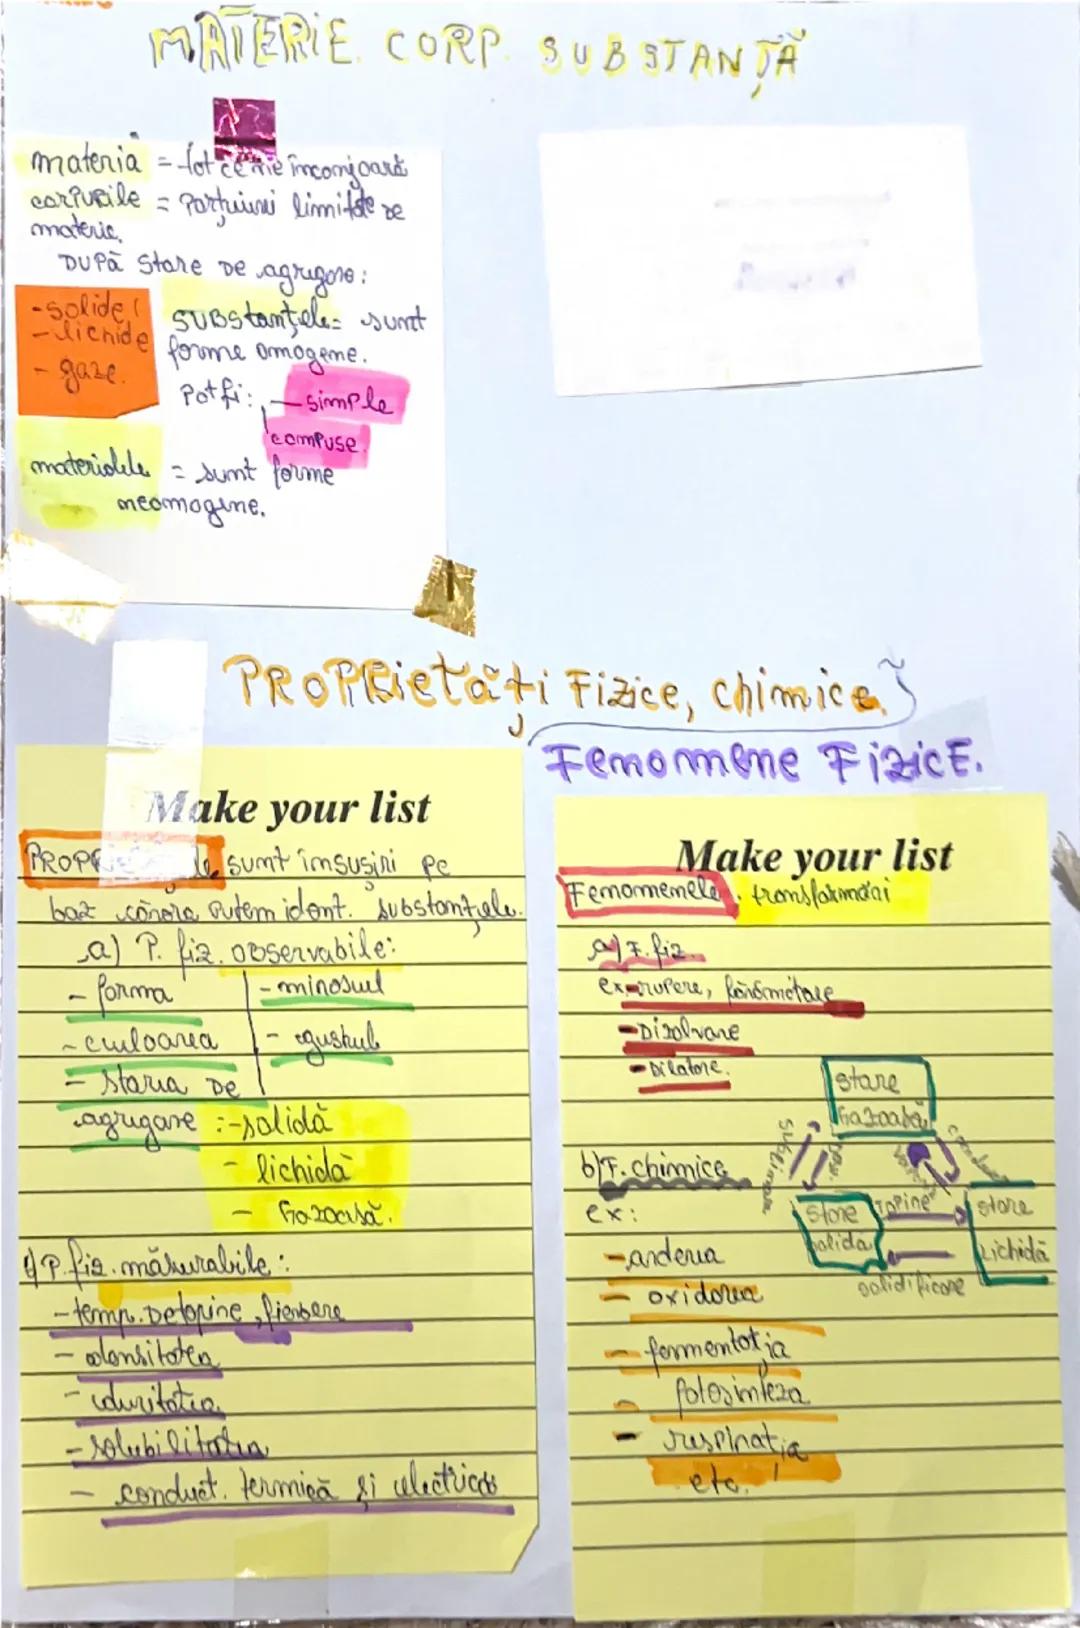 MATERIE. CORP. SUBSTANȚĂ
materia = tot ce ne inconjoară
corpurile = Porțiuni limitate de
materie.
DUPĂ Stare De agregare:
- solide!
- lichide
- gaze.
SUBStanțele = sunt
forme omogene.
Pot fi: - simple
compuse.
materialele = sunt forme
neomogene.
PROPRietăți Fizice, chimice,
Fenomene FizicE.
Make your list
sunt însușiri pe
baz cărora putem ident. substanțele.
a) P. fiz. observabile:
- forma
- culoarea
- starea De
agregare :- solidă
- lichidă
- Gazoasă.
- mirosul
- gustul
P. fiz. măsurabile:
- temp. De topire, fierbere
- densitatea
- duritatea
- solubilitatea
- conduct. termică și electrică
Make your list
Fenomenele : transformări
a) F. fiz.
ex - rupere, fărâmițare
- Dizolvare
- Dilatare.
stare
Gazoasă
sublimare
stare
solidă
Topire
stare
Lichidă
solidificare
b) F. chimice
ex:
- arderea
- oxidarea
- fermentația
- fotosinteza
- respirația
etc. !